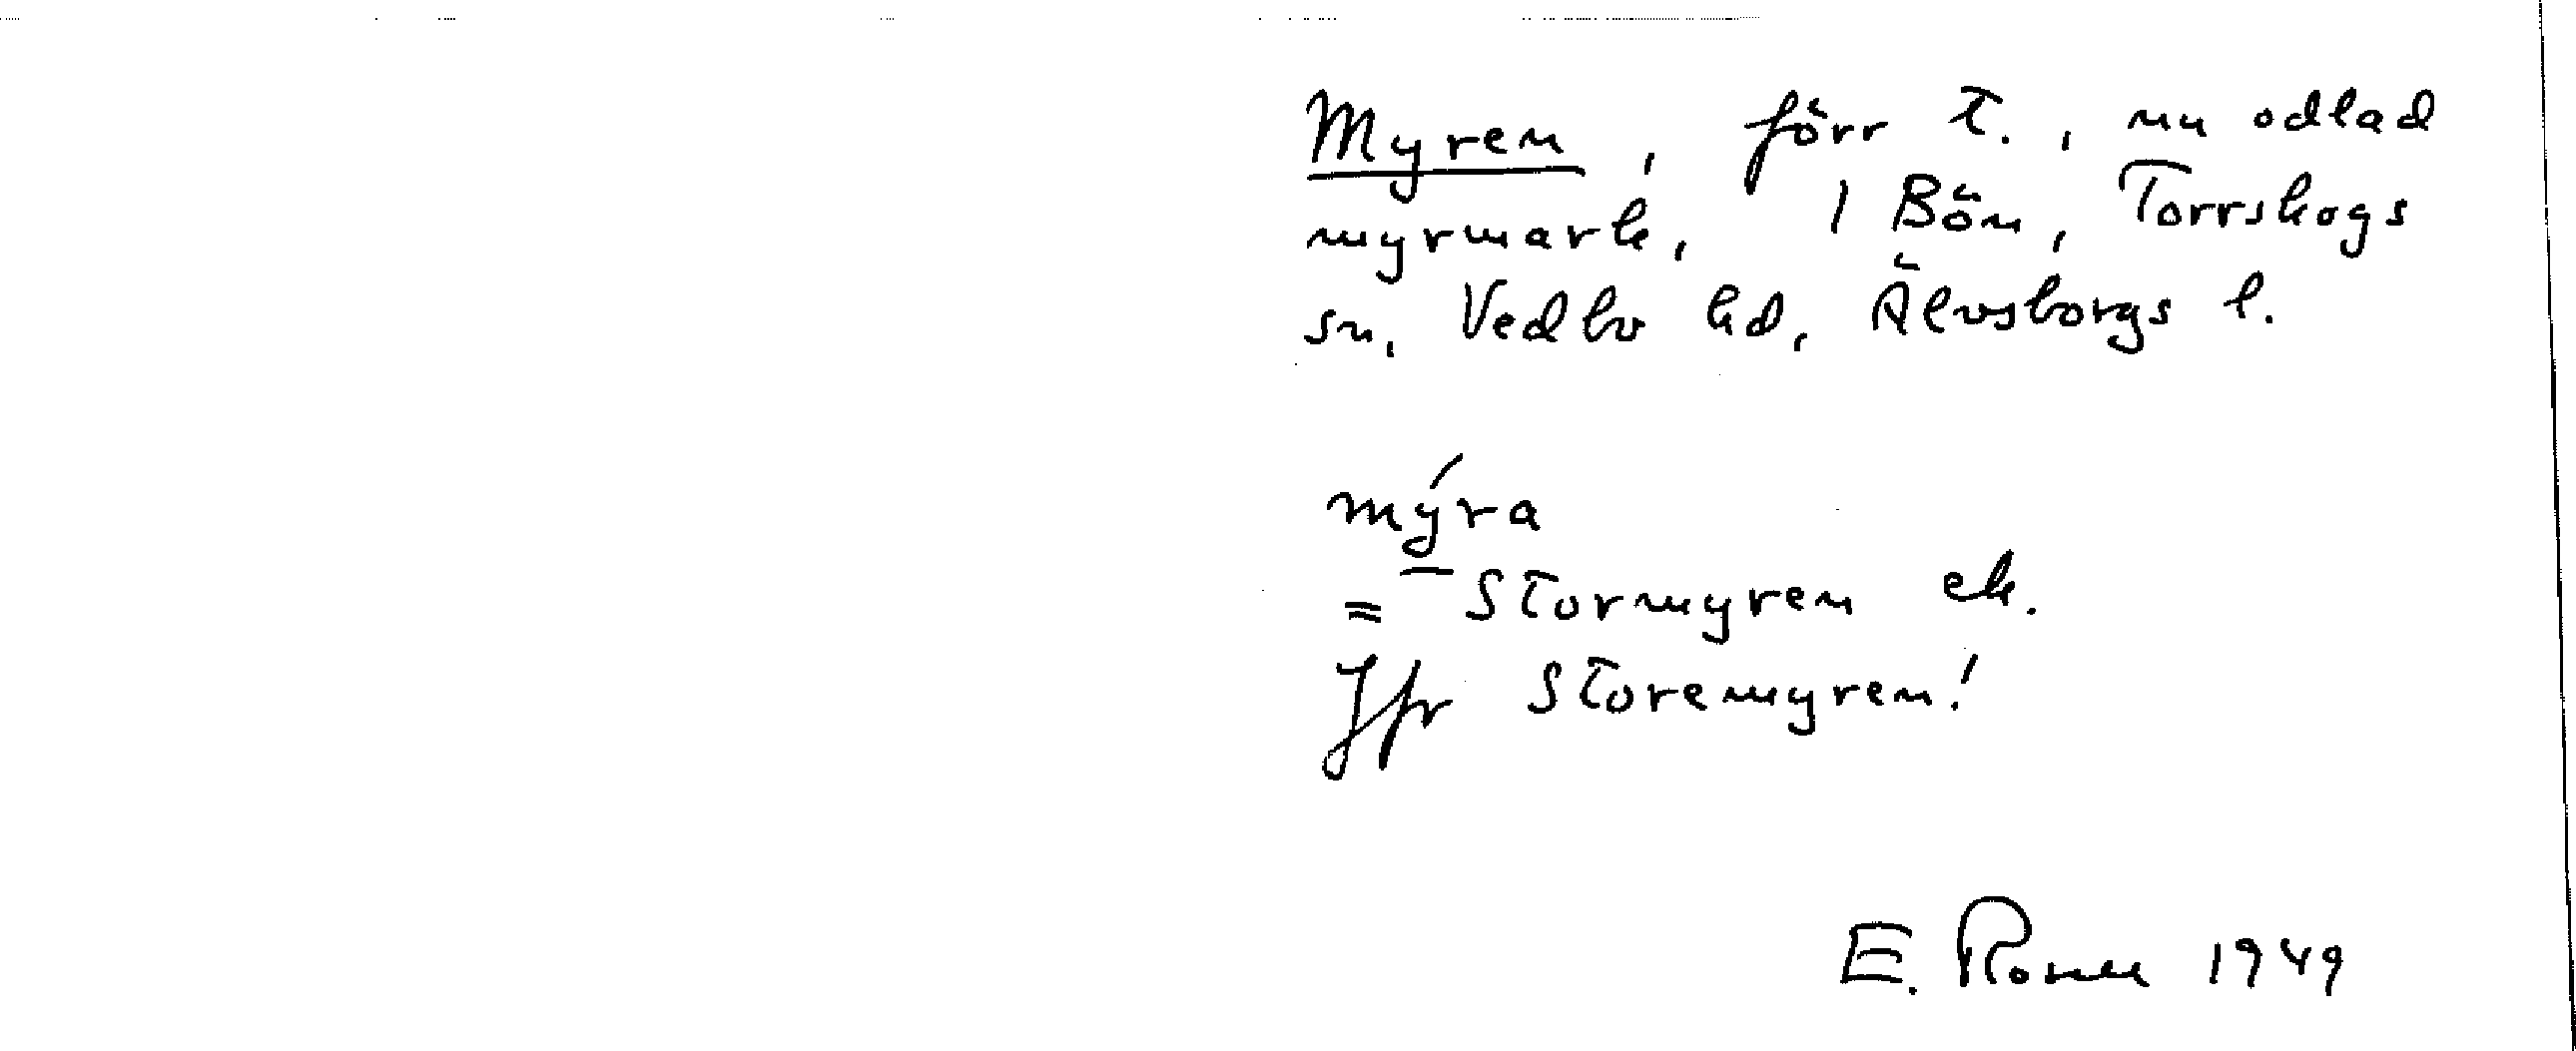 Myren, förr t., nu odlad
myrmark, 1 Bön, Torrskogs
sn, Vedbo hd, Älvsborgs l.
mýra
= Stormyren ek.
Jfr Storemyren!
E. 1949